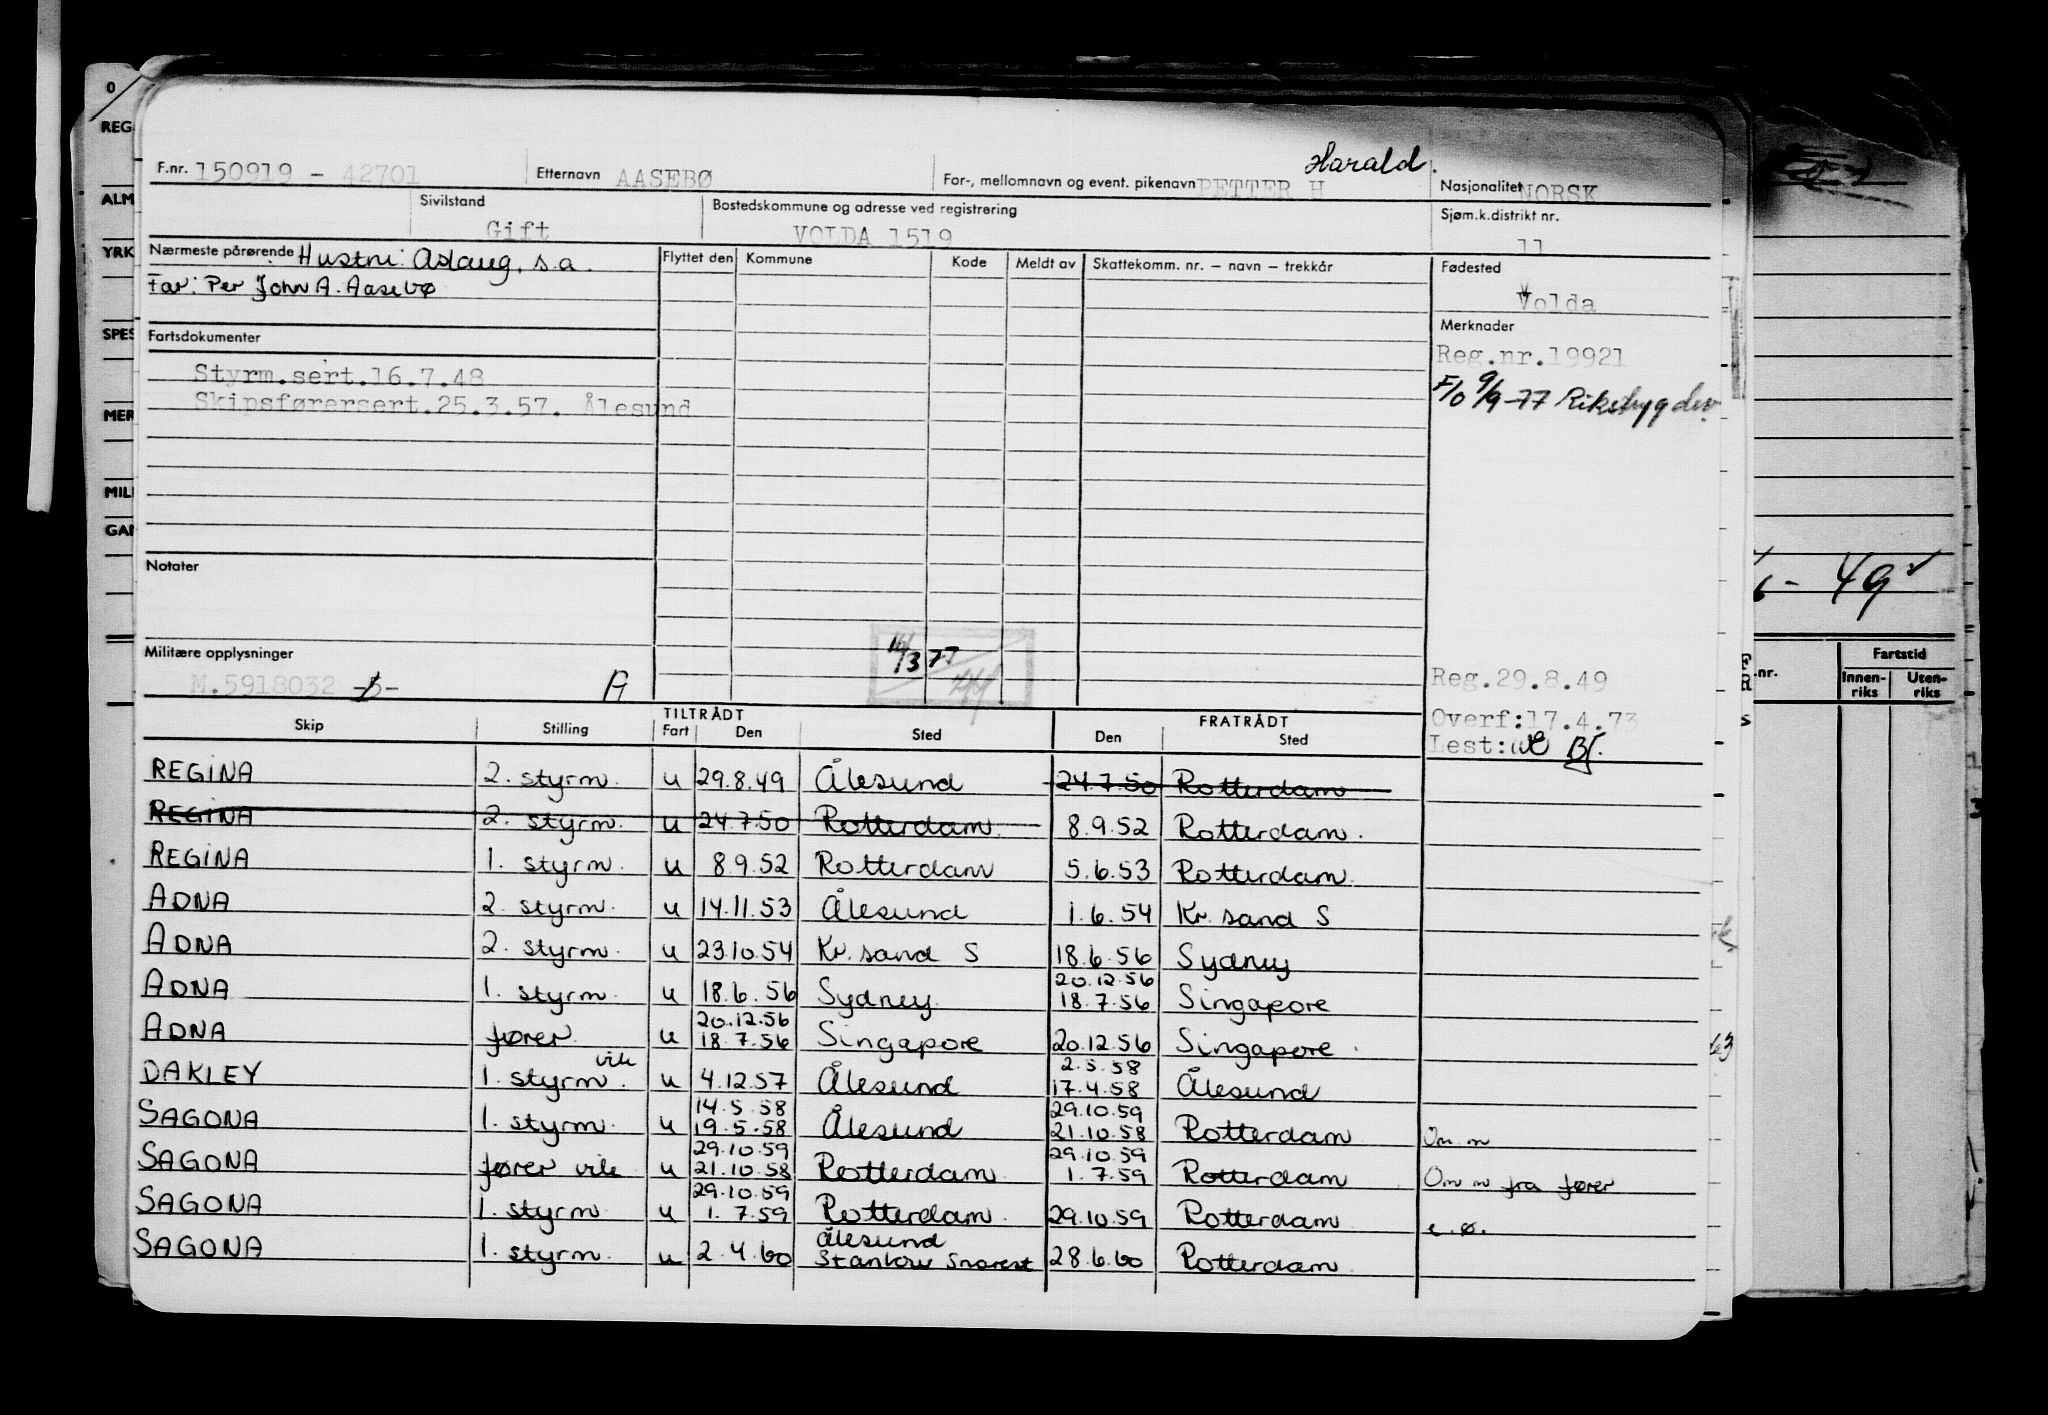 Harald.
F.nr. 150919 - 42701 Etternavn AASEBØ For-, mellomnavn og event. pikenavn PETTER H Nasjonalitet NORSK
Sivilstand Gift Bostedskommune og adresse ved registrering VOLDA 1519 Sjøm.k.distrikt nr. 11
Nærmeste pårørende Hustru: Aslaug, s.a. Flyttet den Kommune Kode Meldt av Skattekomm. nr. – navn – trekkår Fødested
Far: Per John A. Aasebø Volda
Fartsdokumenter Merknader
Reg.nr.19921
Styrm.sert.16.7.48
F/o 9/9-77 Riksbygden
Skipsførersert.25.3.57. Ålesund
Notater
Militære opplysninger 16/3 77
M.5918032 -b- A Reg.29.8.49
TILTRÅDT FRATRÅDT Overf:17.4.73
Skip Stilling Fart Den Sted Den Sted Lest:
REGINA 2. styrm. u 29.8.49 Ålesund 24.7.50 Rotterdam
REGINA 2. styrm. u 24.7.50 Rotterdam 8.9.52 Rotterdam.
REGINA 1. styrm. u 8.9.52 Rotterdam 5.6.53 Rotterdam
ADNA 2. styrm. u 14.11.53 Ålesund 1.6.54 Kr.sand S
ADNA 2. styrm. u 23.10.54 Kr.sand S 18.6.56 Sydney
20.12.56
ADNA 1. styrm. u 18.6.56 Sydney 18.7.56 Singapore
20.12.56
ADNA fører u 18.7.56 Singapore 20.12.56 Singapore
vik 2.5.58
DAKLEY 1. styrm. u 4.12.57 Ålesund 17.4.58 Ålesund
14.5.58 29.10.59
SAGONA 1. styrm. u 19.5.58 Ålesund 21.10.58 Rotterdam Om.m
29.10.59 29.10.59
SAGONA fører vik u 21.10.58 Rotterdam 1.7.59 Rotterdam Om m fra fører
29.10.59
SAGONA 1. styrm. u 1.7.59 Rotterdam 29.10.59 Rotterdam e.ø.
Ålesund
SAGONA 1. styrm. u 2.4.60 28.6.60 Rotterdam
0
REG
ALM
YRK
SPES
MER
MILI
GAN
49
.nr. Fartstid
Innen-riks Uten-riks